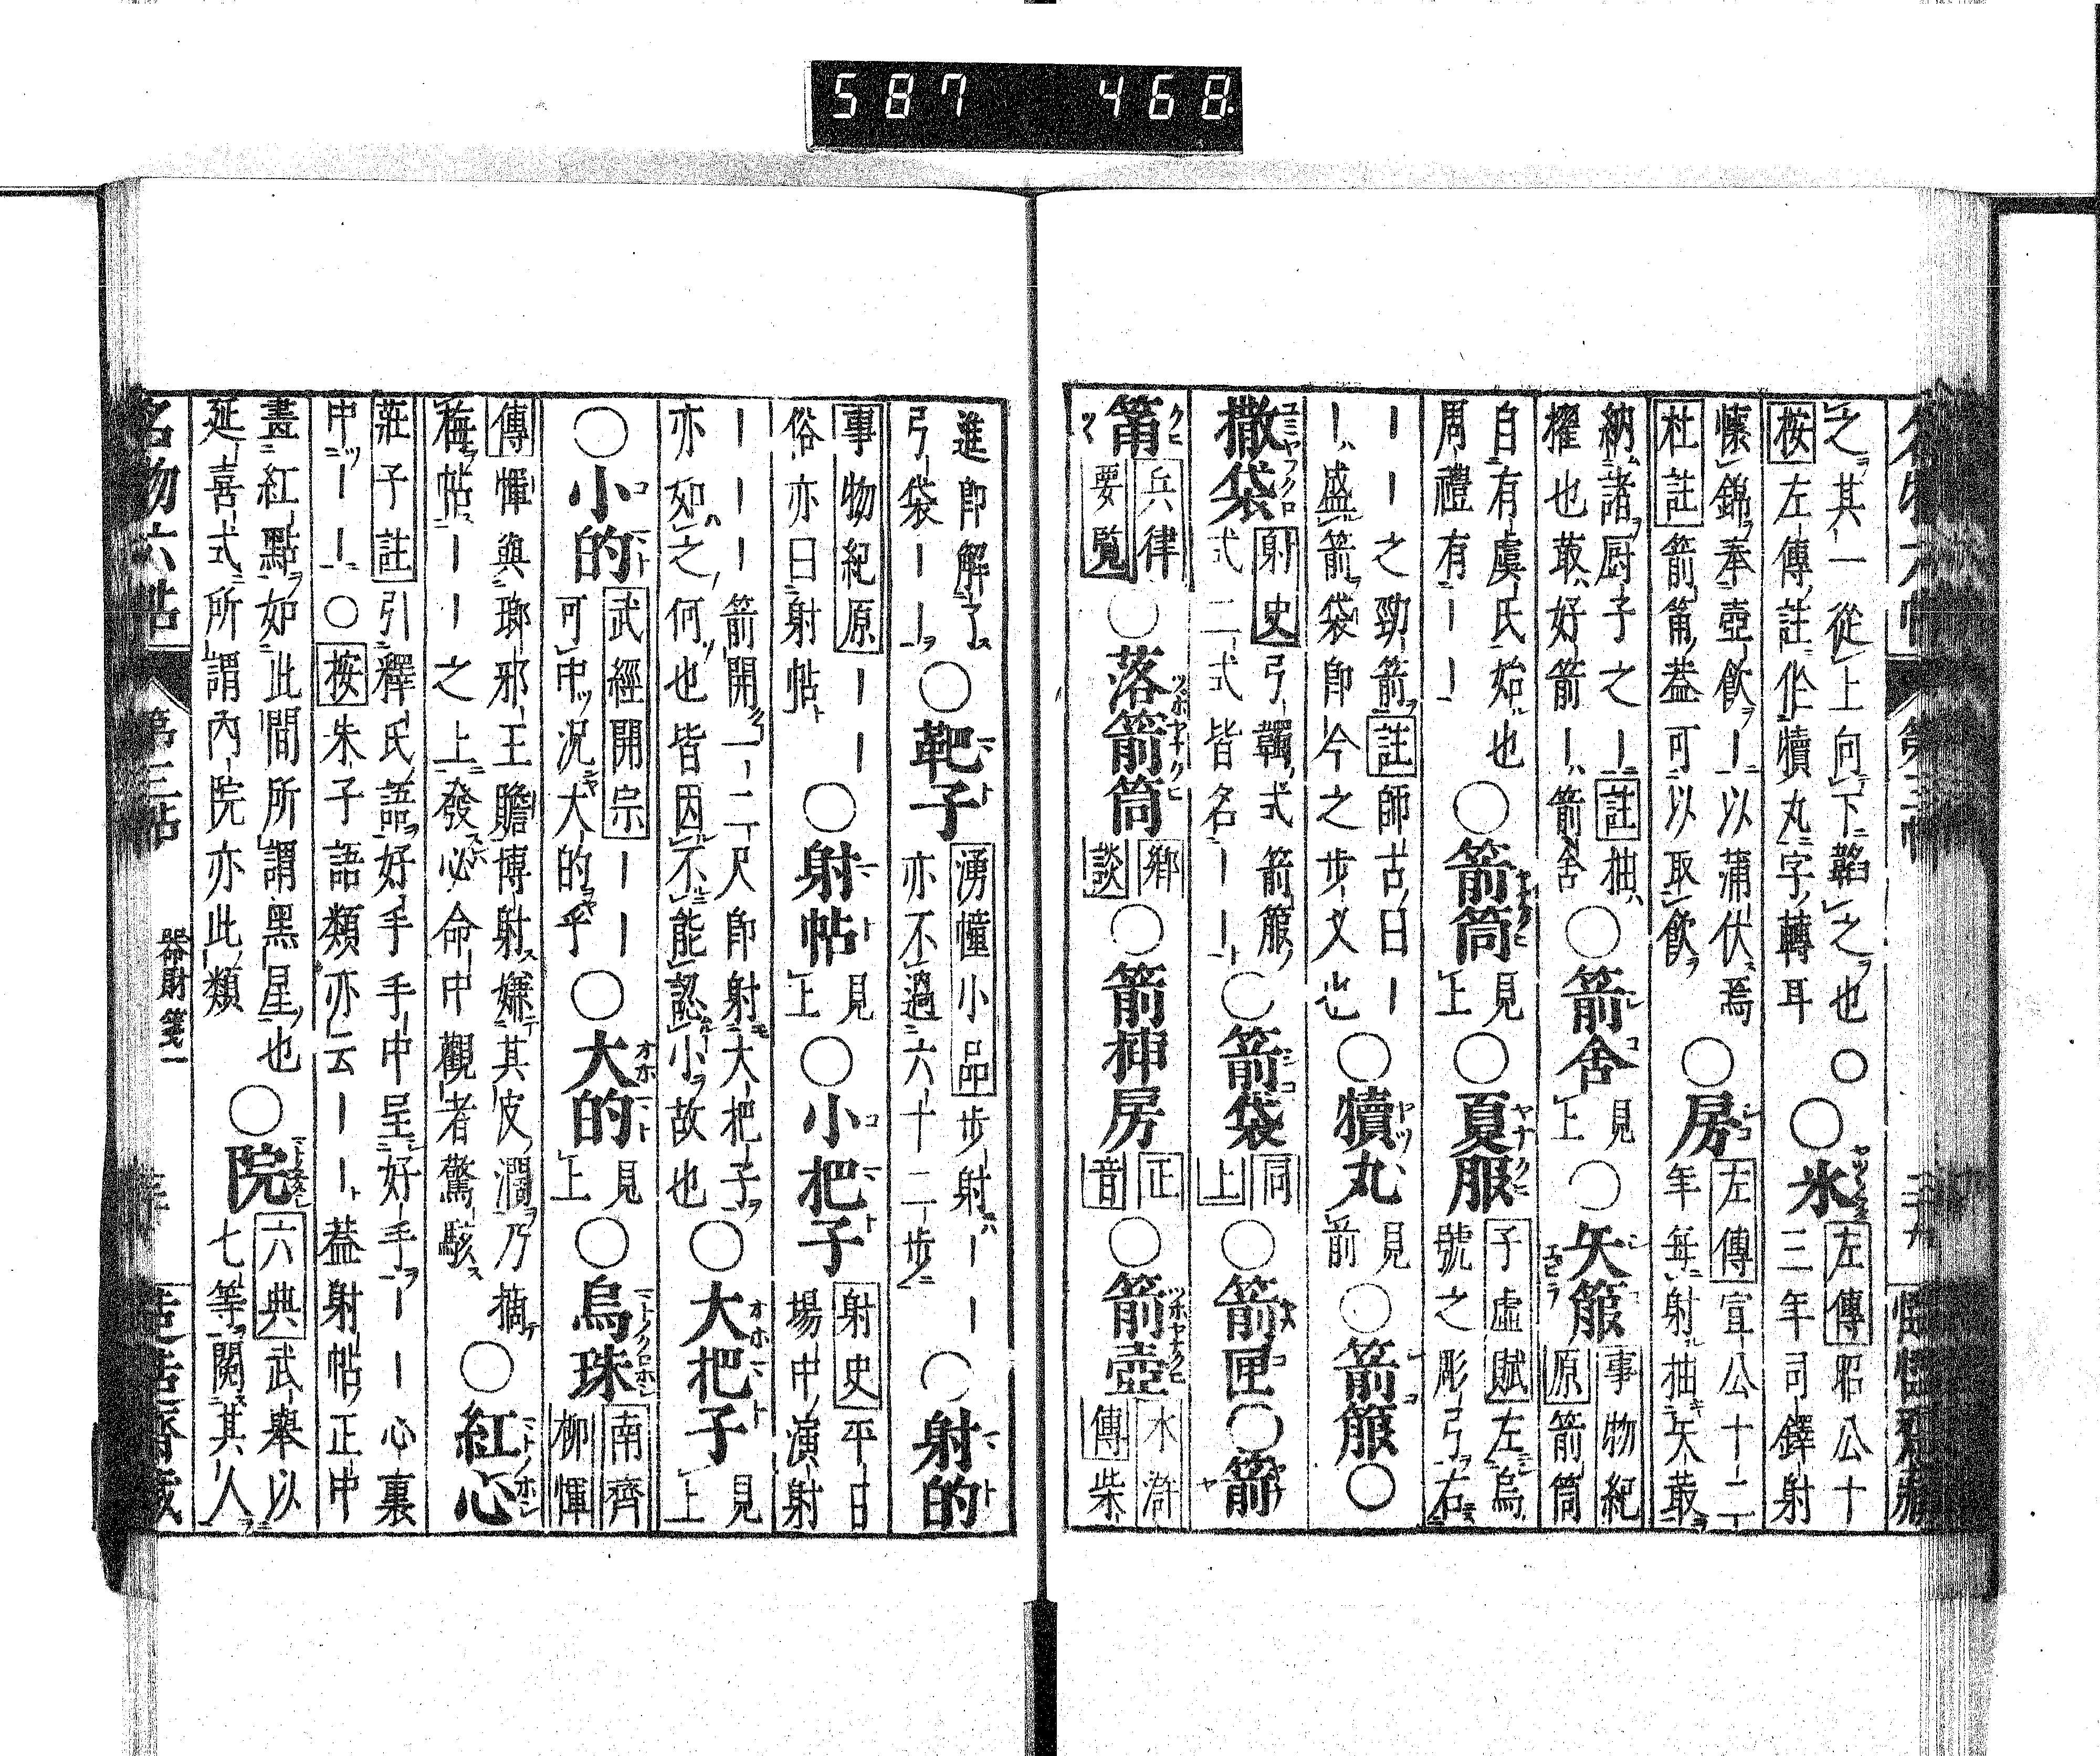 587 468
名物六帖
之其一從上向下韜之也
按左傳註作犢丸字轉耳
○ ○氷
左傳昭公十
三年司鐸射
懷錦奉壺飲ー以蒲伏焉
杜註箭筩蓋可以取飲
○房
左傳宣公十二
年每射抽矢菆
納諸厨子之ー註抽
擢也菆好箭ー箭舍
○箭舍
見上
○矢箙
事物紀
原箭筒
自有虞氏始也
周禮有ーー
○箭筒
見上
○夏服
子虛賦左烏
號之彫弓右
ーーー之勁箭註師古曰ー
ー盛箭袋即今之步叉也
○犢丸
見前
○箭箙○
撒袋
射史弓韣式箭箙
式二式皆名ーー
○箭袋
同上
○箭匣○箭
筩
兵律
要覧
○落箭筒
鄉談
○箭押房
正音
○箭壺
水滸
傳柴
進即解了
弓袋ーー
○靶子
湧幢小品步射ーー
亦不過六十二步
○射的
事物紀原ーー
俗亦曰射帖
○射帖
見上
○小把子
射史平日
場中演射
ーーー箭開一二尺即射大把子
亦如之何也皆因不能認小故也
○大把子
見上
○小的
武經開宗ーー
可中況大的乎
○大的
見上
○烏珠
南齊
柳惲
傳惲與瑯邪王贍博射嫌其皮濶乃摘
梅帖ーー之上發必命中觀者驚駭
○紅心
莊子註引釋氏語好手手中呈好手ーー心裏
中ーー○按朱子語類亦云ーー蓋射帖正中
畫紅點如此間所謂黑星也
延喜式所謂內院亦此類
○院
六典武舉以
七等閱其人
名物六帖 第三帖 器財箋一